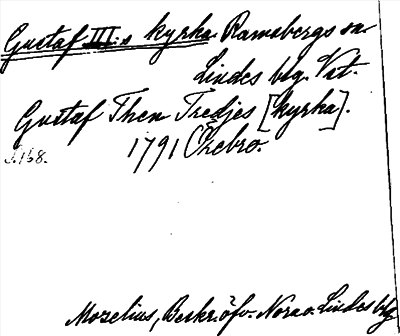 Gustaf III:s kyrka Ramsbergs sn
Lindes blg. Vst.
Gustaf Then Tredjes [kyrka].
1791 Örebro.
s. 168.
Mozelius, Beskr. öfv. Nora o. Lindes blg